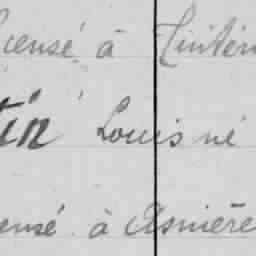 censé à
tin Louis né
ensé à Asnière